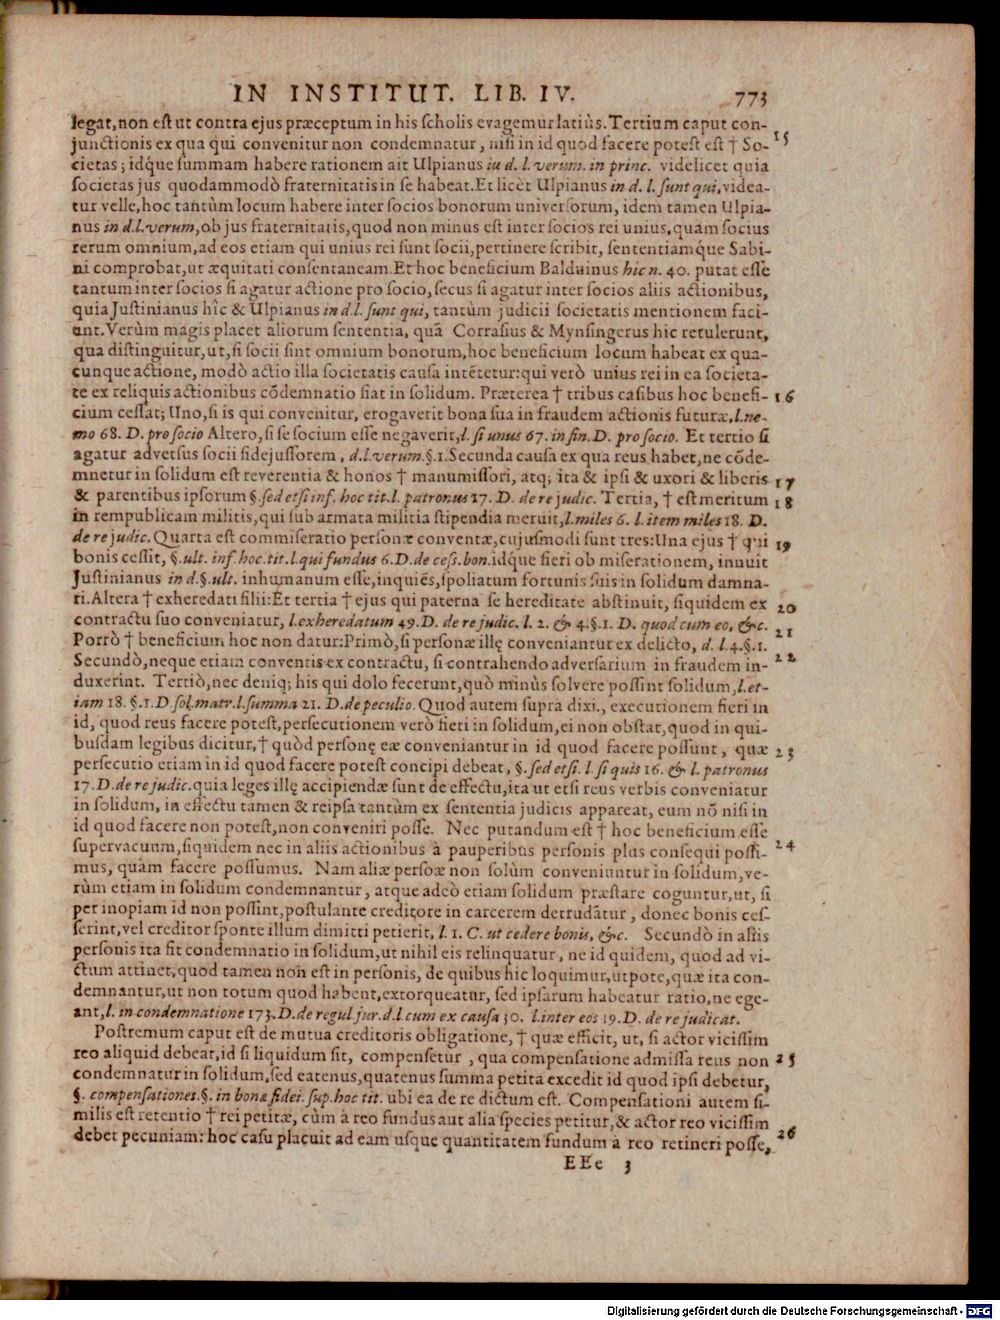 IN INSTITUT. LIB. IV. 773
legat, non est ut contra ejus præceptum in his scholis evagemur latiùs. Tertium caput con-
junctionis ex qua qui convenitur non condemnatur, nisi in id quod facere potest est † So- 15
cietas; idq́ue summam habere rationem ait Ulpianus in d. l. verum. in princ. videlicet quia
societas jus quodammodò fraternitatis in se habeat. Et licèt Ulpianus in d. l. sunt qui, videa-
tur velle, hoc tantùm locum habere inter socios bonorum universorum, idem tamen Ulpia-
nus in d. l. verum, ob jus fraternitatis, quod non minus est inter socios rei unius, quàm socius
rerum omnium, ad eos etiam qui unius rei sunt socii, pertinere scribit, sententiamq́ue Sabi-
ni comprobat, ut æquitati consentaneam. Et hoc beneficium Balduinus hic n. 40. putat esse
tantum inter socios si agatur actione pro socio, secus si agatur inter socios aliis actionibus,
quia Justinianus hîc & Ulpianus in d. l. sunt qui, tantùm judicii societatis mentionem faci-
unt. Verùm magis placet aliorum sententia, quā Corrasius & Mynsingerus hic retulerunt,
qua distinguitur, ut, si socii sint omnium bonorum, hoc beneficium locum habeat ex qua-
cunque actione, modò actio illa societatis causa intētetur: qui verò unius rei in ea societa-
te ex reliquis actionibus cōdemnatio fiat in solidum. Præterea † tribus casibus hoc benefi- 16
cium cessat; Uno, si is qui convenitur, erogaverit bona sua in fraudem actionis futuræ, l. ne-
mo 68. D. pro socio Altero, si se socium esse negaverit, l. si unus 67. in fin. D. pro socio. Et tertio si
agatur adversus socii fidejussorem, d. l. verum. §. 1. Secunda causa ex qua reus habet, ne cōde-
mnetur in solidum est reverentia & honos † manumissori, atq; ita & ipsi & uxori & liberis 17
& parentibus ipsorum §. sed etsi inf. hoc tit. l. patronus 17. D. de re judic. Tertia, † est meritum 18
in rempublicam militis, qui sub armata militia stipendia meruit, l. miles 6. l. item miles 18. D.
de re judic. Quarta est commiseratio personæ conventæ, cujusmodi sunt tres: Una ejus † qui 19
bonis cessit, §. ult. inf. hoc tit. l. qui fundus 6. D. de ces. bon. idq́ue fieri ob miserationem, innuit
Justinianus in d. §. ult. inhumanum esse, inquiēs, spoliatum fortunis suis in solidum damna-
ri. Altera † exheredati filii: Et tertia † ejus qui paterna se hereditate abstinuit, siquidem ex 20
contractu suo conveniatur, l. exheredatum 49. D. de re judic. l. 2. & 4. §. 1. D. quod cum eo, &c. 21
Porrò † beneficium hoc non datur: Primò, si personæ illę conveniantur ex delicto, d. l. 4. §. 1.
Secundò, neque etiam conventis ex contractu, si contrahendo adversarium in fraudem in- 22
duxerint. Tertiò, nec deniq; his qui dolo fecerunt, quò minùs solvere possint solidum, l. et-
iam 18. §. 1. D sol. matr. l. summa 21. D. de peculio. Quod autem supra dixi, executionem fieri in
id, quod reus facere potest, persecutionem verò fieri in solidum, ei non obstat, quod in qui-
busdam legibus dicitur, † quòd personę eæ conveniantur in id quod facere possunt, quæ 23
persecutio etiam in id quod facere potest concipi debeat, §. sed etsi. l. si quis 16. & l. patronus
17. D. de re judic. quia leges illę accipiendæ sunt de effectu, ita ut etsi reus verbis conveniatur
in solidum, in effectu tamen & reipsa tantùm ex sententia judicis appareat, eum nō nisi in
id quod facere non potest, non conveniri posse. Nec putandum est † hoc beneficium esse
supervacuum, siquidem nec in aliis actionibus à pauperibus personis plus consequi possi- 24
mus, quàm facere possumus. Nam aliæ persoæ non solùm conveniuntur in solidum, ve-
rùm etiam in solidum condemnantur, atque adeò etiam solidum præstare coguntur, ut, si
per inopiam id non possint, postulante creditore in carcerem detrudātur, donec bonis ces-
serint, vel creditor sponte illum dimitti petierit, l. 1. C. ut cedere bonis, &c. Secundò in aliis
personis ita fit condemnatio in solidum, ut nihil eis relinquatur, ne id quidem, quod ad vi-
ctum attinet, quod tamen non est in personis, de quibus hic loquimur, utpote, quæ ita con-
demnantur, ut non totum quod habent, extorqueatur, sed ipsarum habeatur ratio, ne ege-
ant, l. in condemnatione 173. D. de regul jur. d. l. cum ex causa 30. l. inter eos 19. D. de re judicat.
Postremum caput est de mutua creditoris obligatione, † quæ efficit, ut, si actor vicissim
reo aliquid debeat, id si liquidum sit, compensetur, qua compensatione admissa reus non 25
condemnatur in solidum, sed eatenus, quatenus summa petita excedit id quod ipsi debetur,
§. compensationes. §. in bonæ fidei. sup. hoc tit. ubi ea de re dictum est. Compensationi autem si-
milis est retentio † rei petitæ, cùm à reo fundus aut alia species petitur, & actor reo vicissim
debet pecuniam: hoc casu placuit ad eam usque quantitatem fundum à reo retineri posse, 26
EEe 3
Digitalisierung gefördert durch die Deutsche Forschungsgemeinschaft - DFG